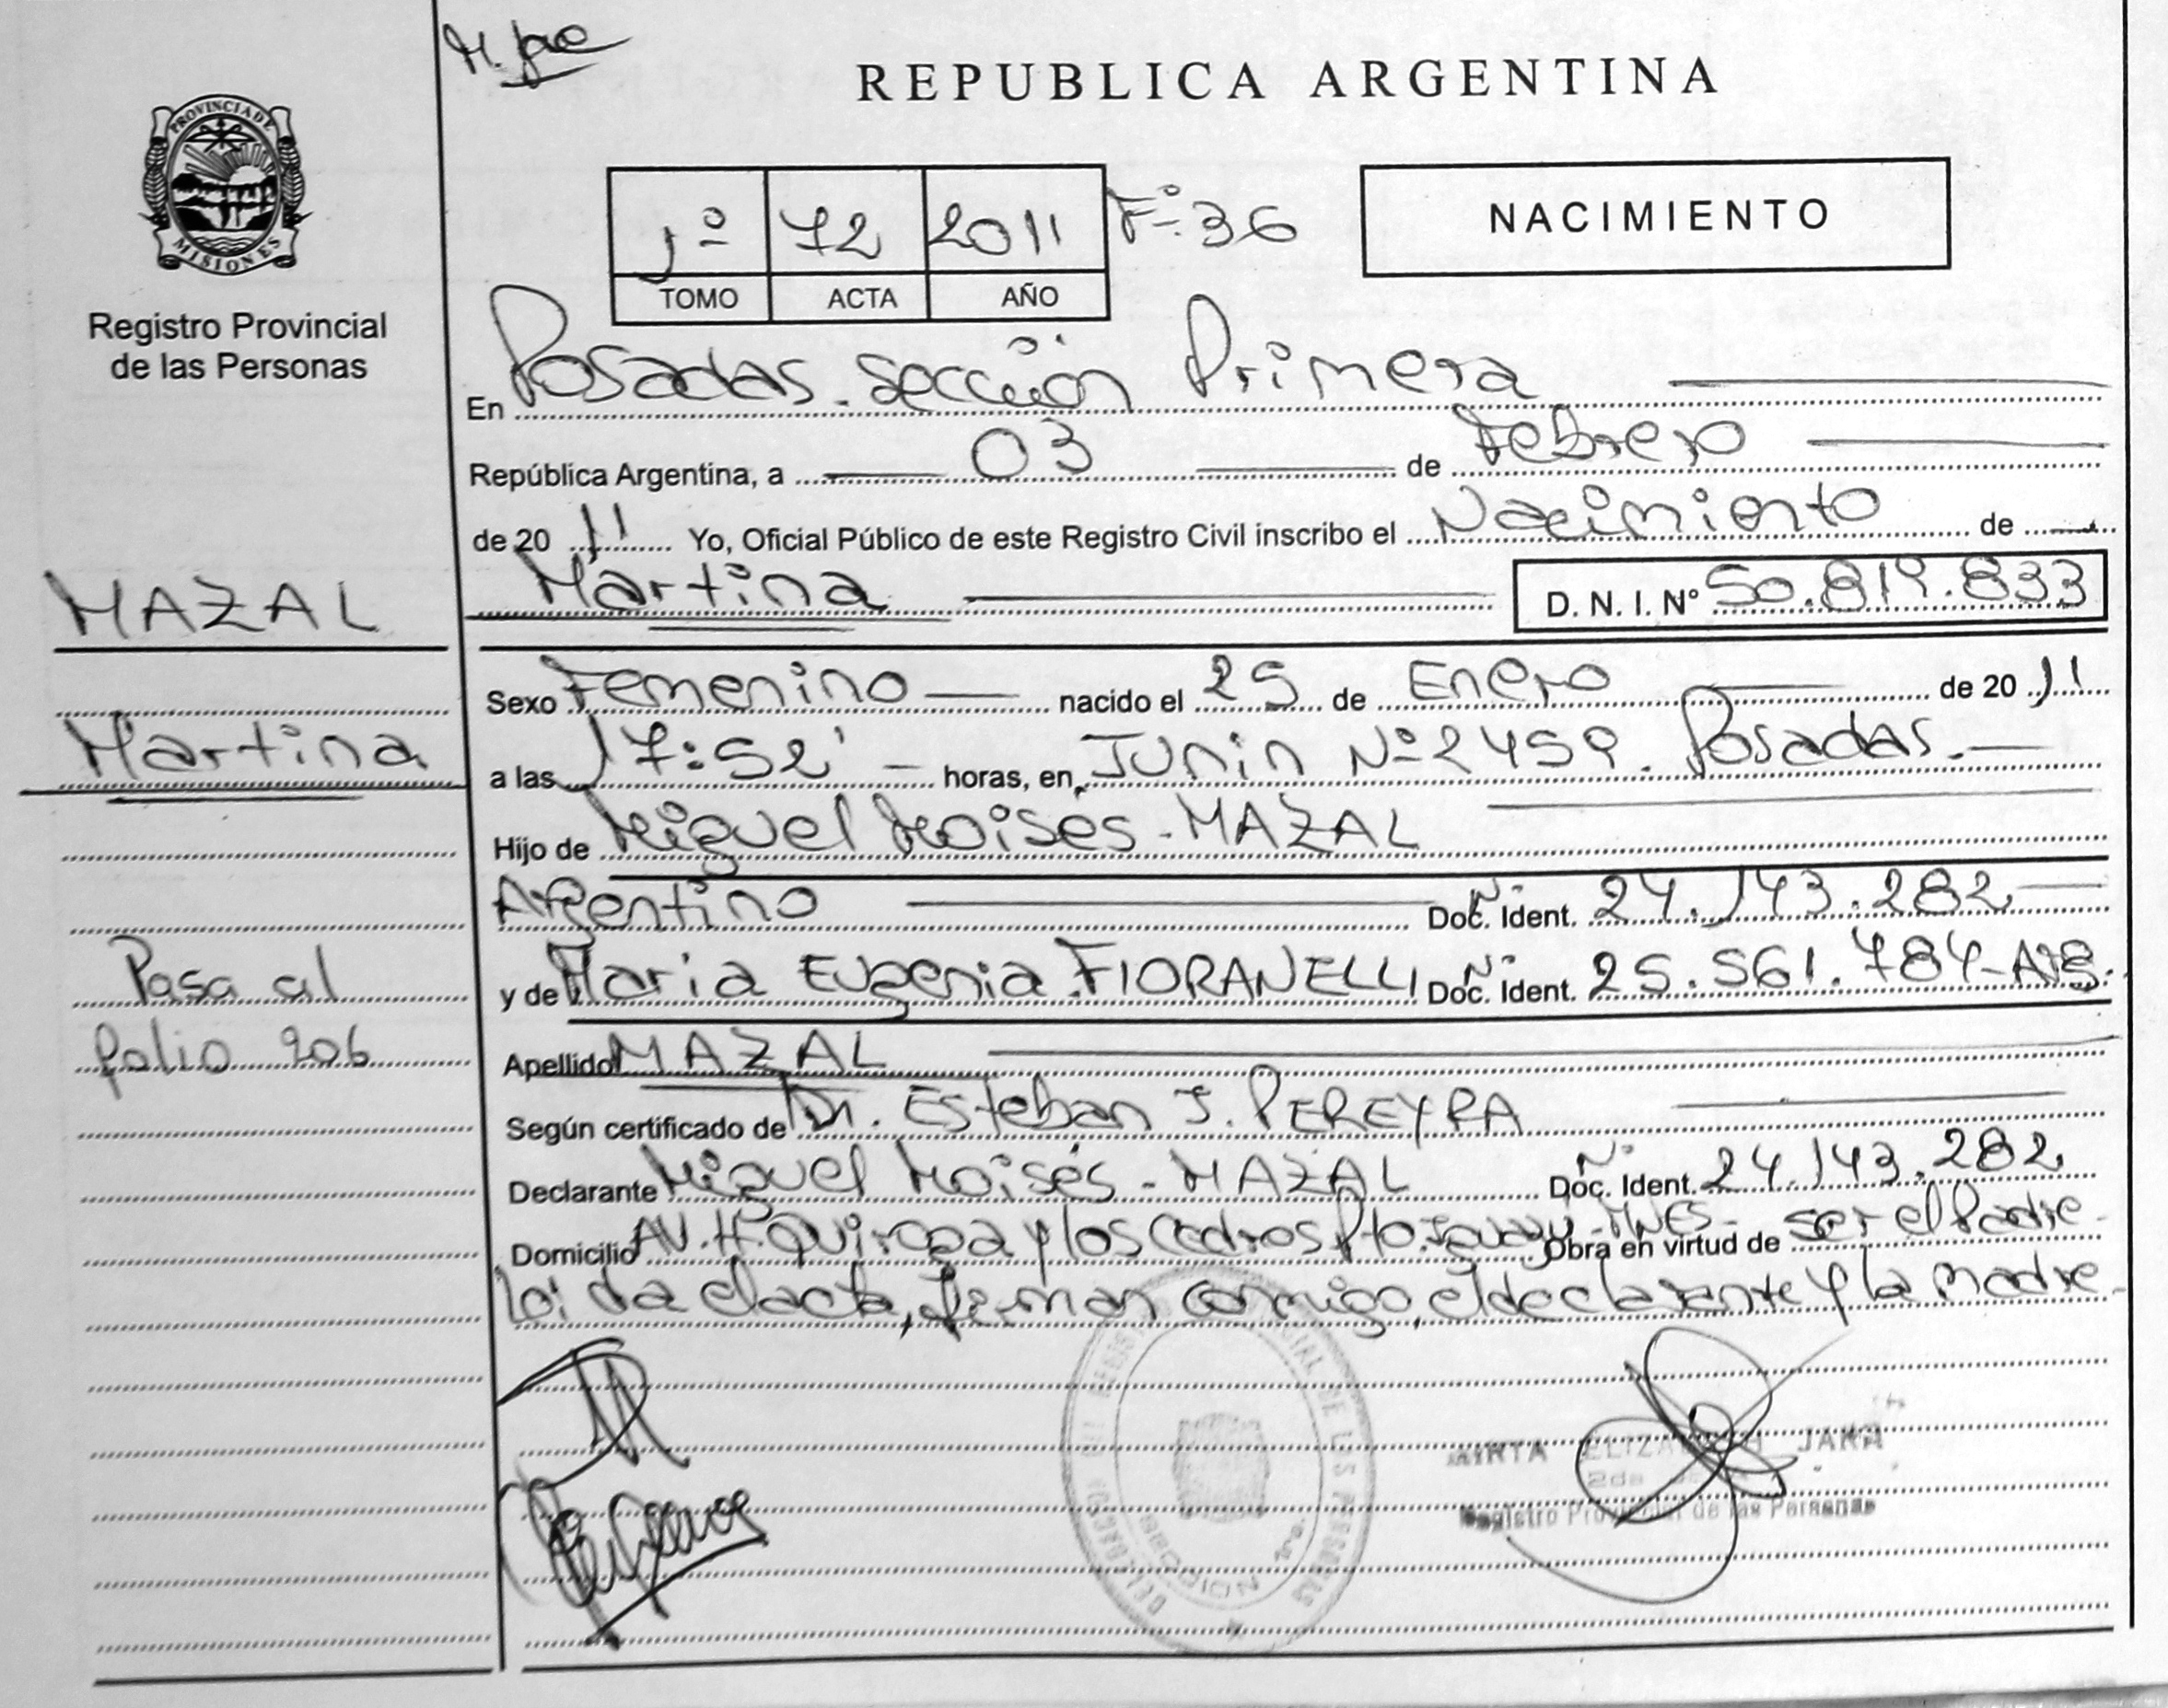 REPUBLICA ARGENTINA
PROVINCIA DE
MISIONES
Registro Provincial
de las Personas
1º 72 2011 Fº 36
TOMO ACTA AÑO
NACIMIENTO
En Posadas. sección Primera
República Argentina, a 03 de Febrero
de 20 11 Yo, Oficial Público de este Registro Civil inscribo el Nacimiento de
Martina D. N. I. Nº 50.819.833
MAZAL
Martina
Pasa al
folio 206
Sexo Femenino nacido el 25 de Enero de 20 11
a las 17:52' horas, en Junin Nº 2459. Posadas.
Hijo de Miguel Moisés - MAZAL
Argentino Doc. Ident. Nº 24.143.282
y de María Eugenia FIORANELLI Doc. Ident. Nº 25.561.784-
Apellido MAZAL
Según certificado de Dr. Esteban J. PEREYRA
Declarante Miguel Moisés - MAZAL Doc. Ident. Nº 24.143.282
Domicilio AV. H. Quiroga y los Cedros Pto. MNES- Obra en virtud de ser el Padre-
Leida el acta, firman conmigo, el declarante y la madre-
MIRTA JARA
2da
Registro Provincial de las Personas